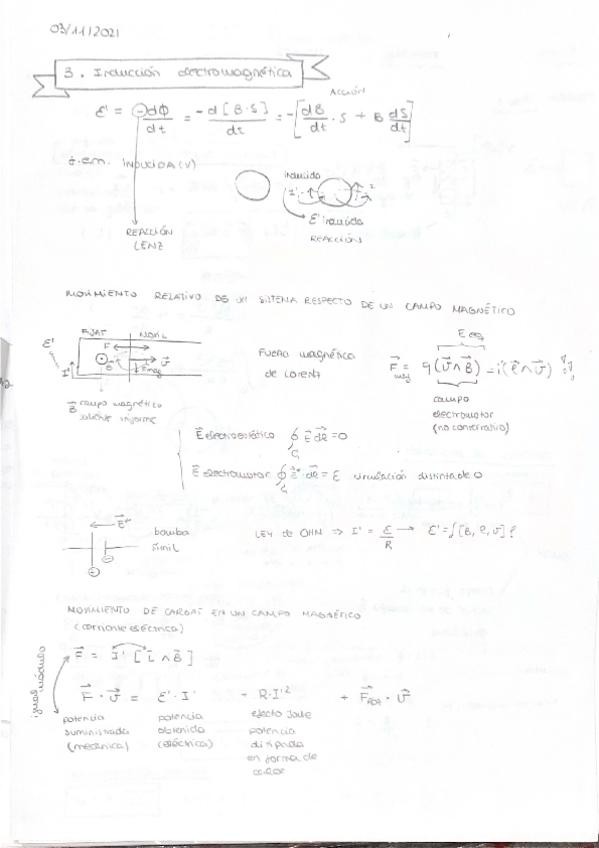 03/11/2021
3. Inducción electromagnética
Acción
ε' = -dΦ/dt = -d[B·S]/dt = -[dB/dt · S + B dS/dt]
f.e.m. INDUCIDA (V)
inducido
I'
ε' inducida
REACCIÓN
REACCIÓN
LENZ
MOVIMIENTO RELATIVO DE UN SISTEMA RESPECTO DE UN CAMPO MAGNÉTICO
ε'
I'
F
B
v
F mag
B campo magnético
saliente uniforme
Fuerza magnética
de Lorentz
E eq
F mag = q(v∧B) = i'(l∧v)
campo
electromotor
(no conservativo)
E electroestático ∮ E dl = 0
C
E electromotor ∮ E* · dl = ε circulación distinta de 0
C
E*
bomba
símil
LEY de OHM ⇒ I' = ε/R → ε' = ∫[B, l, v]?
MOVIMIENTO DE CARGAS EN UN CAMPO MAGNÉTICO
(corriente eléctrica)
igual módulo
F = I' [L ∧ B]
F · v = ε' · I' - R·I'² + F · v
potencia suministrada (mecánica)
potencia obtenida (eléctrica)
efecto Joule potencia disipada en forma de calor